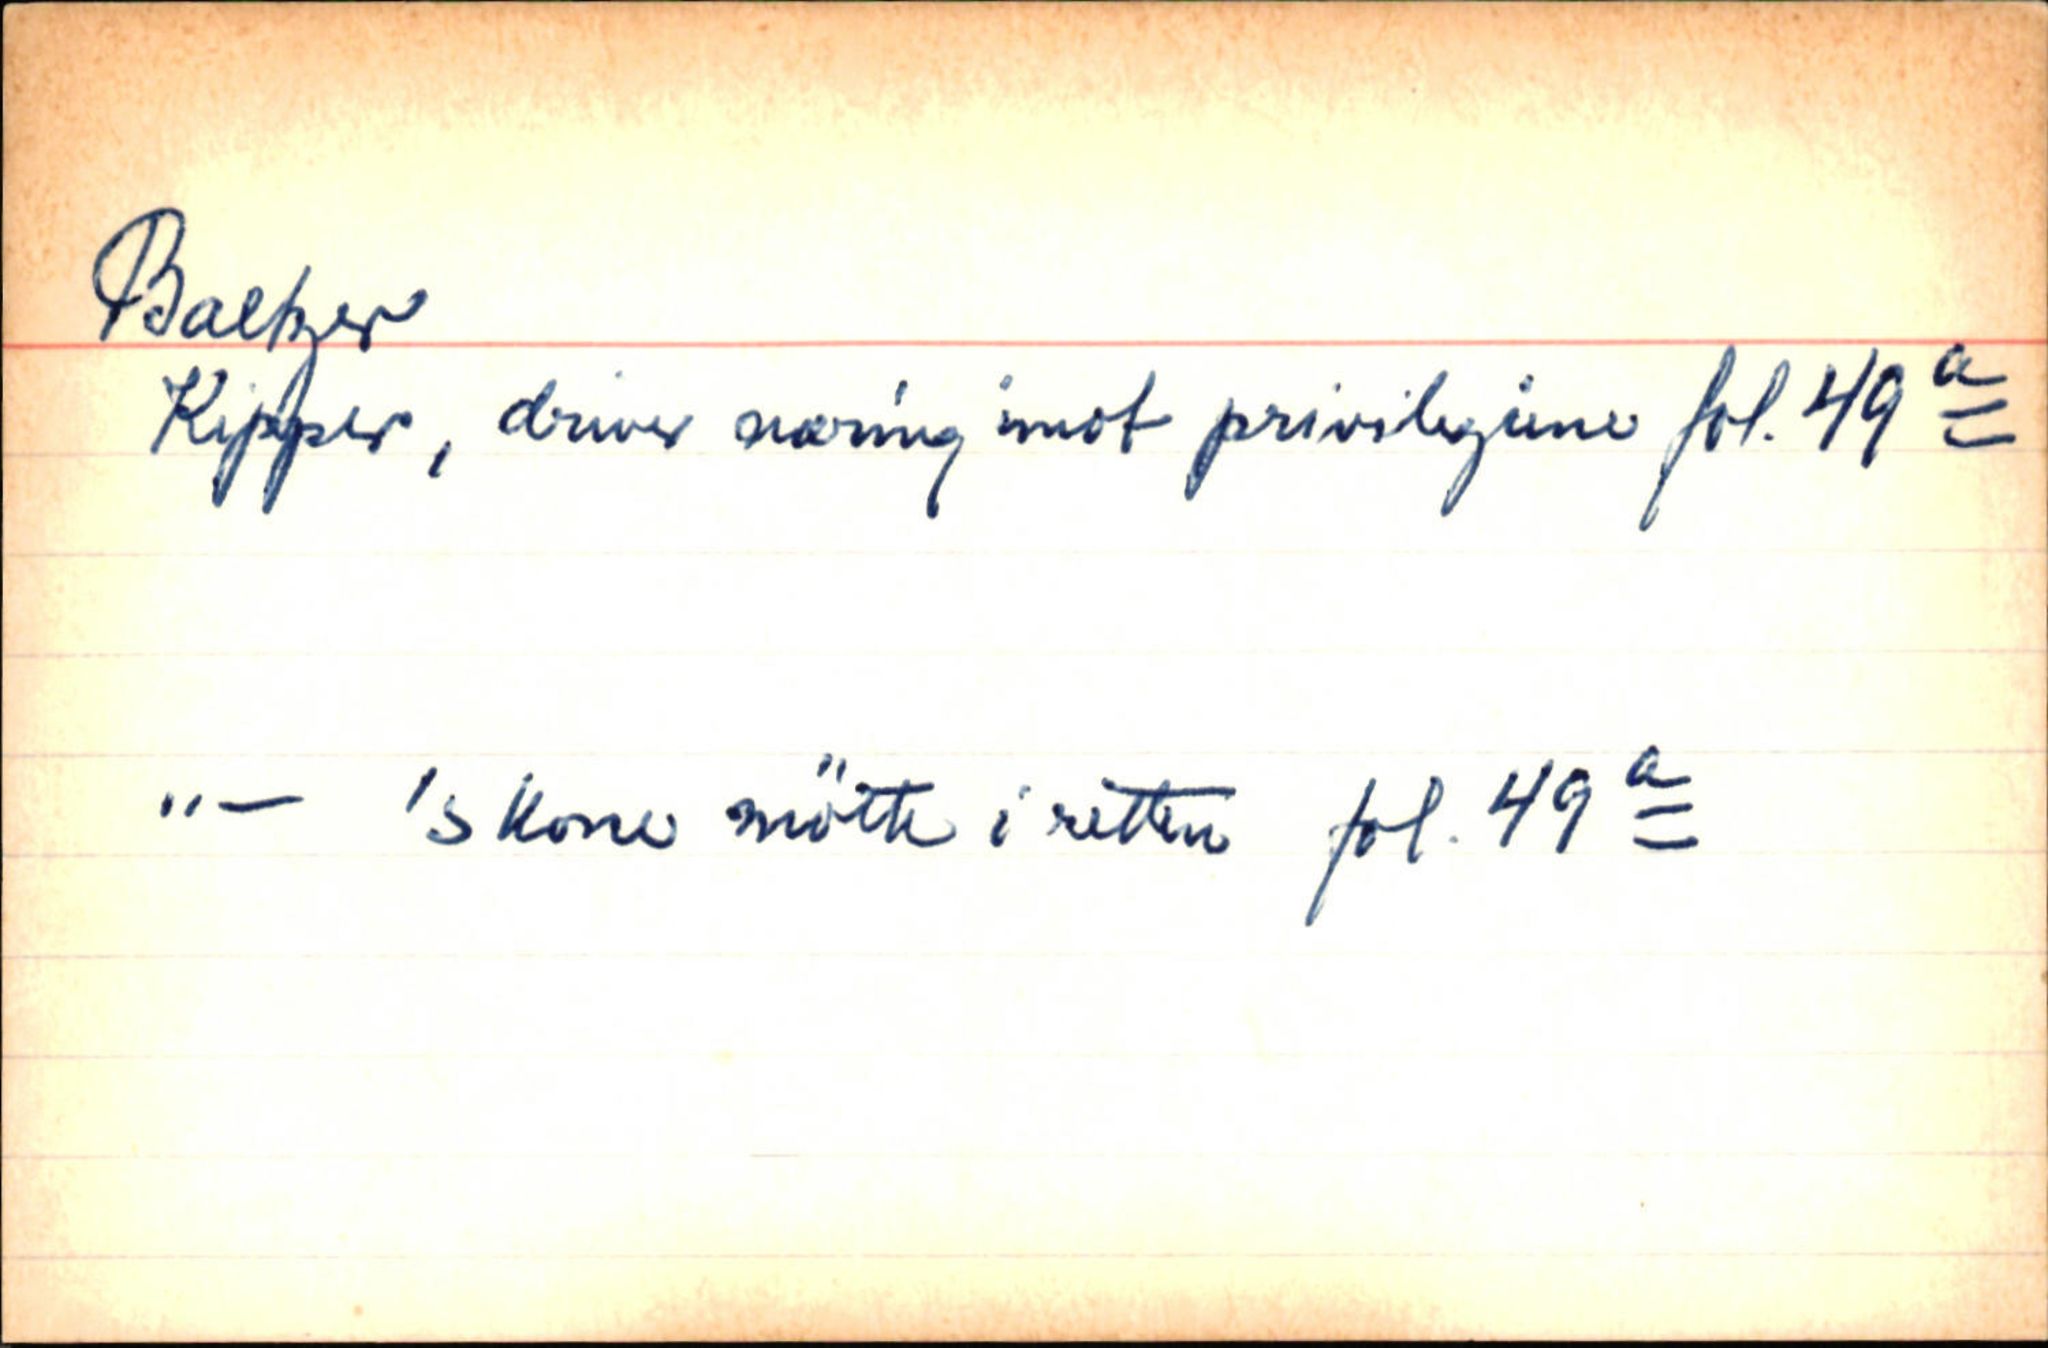 Baltzer
Kipper, driver næring imot privilegiene fol. 49 a
"— 's kone mötte i retten fol. 49 a